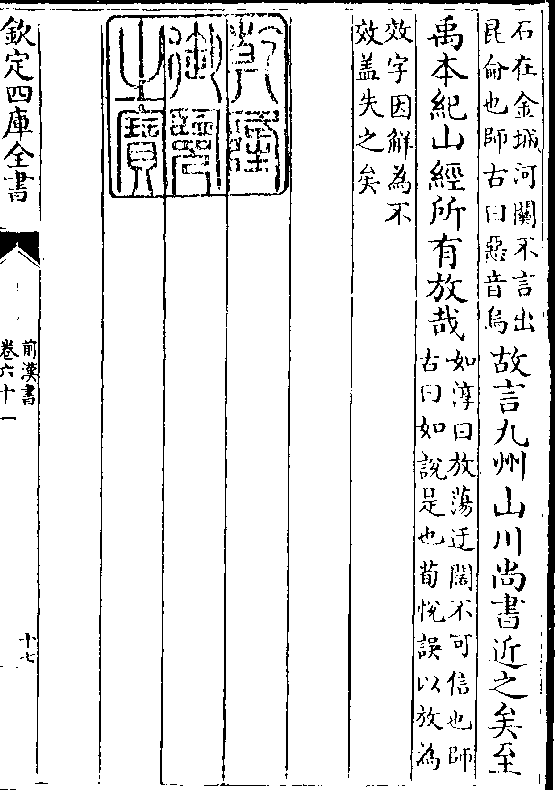 石在金城河關不言出
昆侖也師古曰惡音烏
故言九州山川尚書近之矣至
禹本紀山經所有放哉
如淳曰放蕩迂闊不可信也師
古曰如說是也荀悅誤以放為
效字因解為不
效盖失之矣
乾隆御覽之寶
欽定四庫全書
前漢書
卷六十一
十七